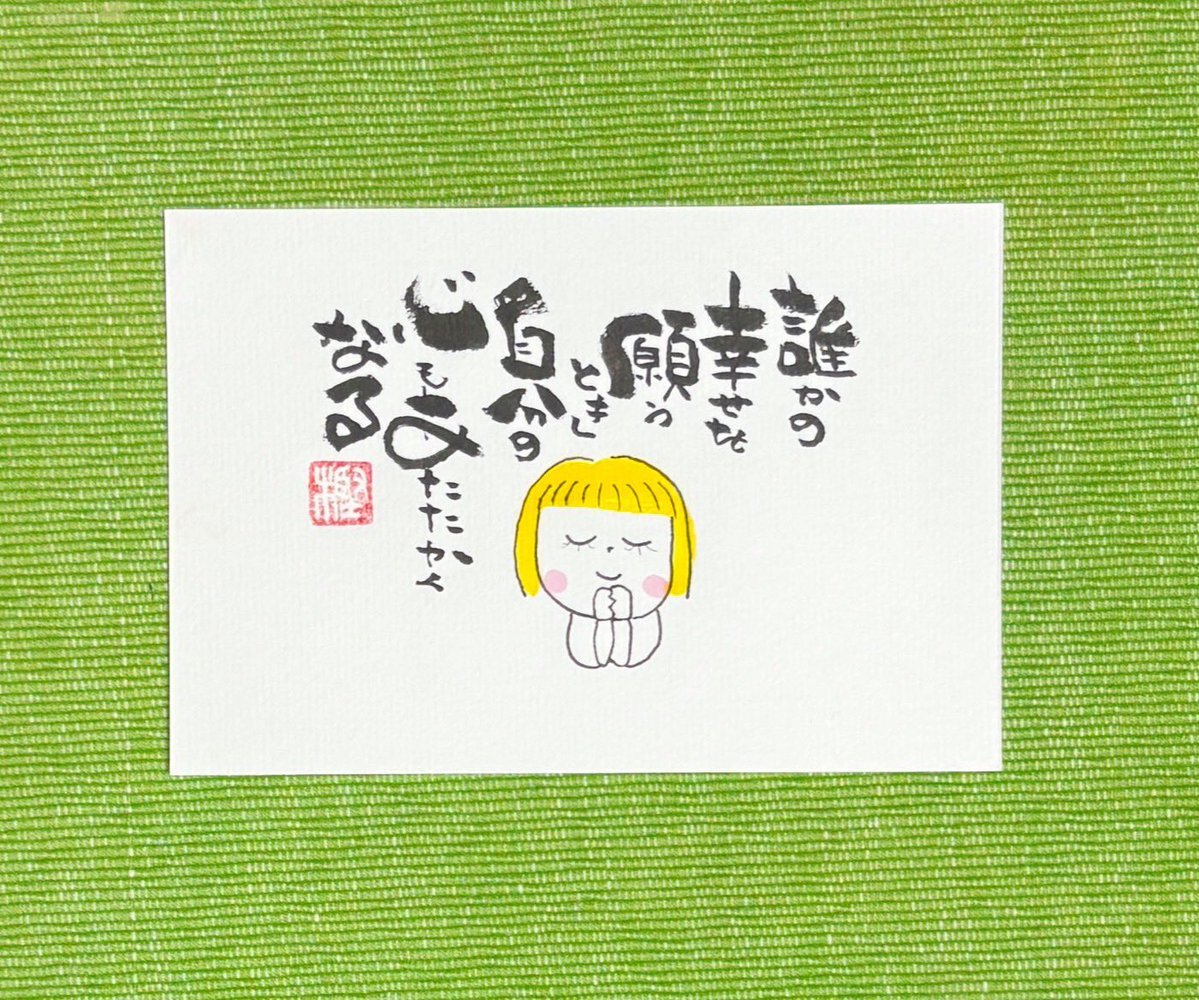 誰かの
幸せを
願う
とき
自分の
心もあたたかく
なる